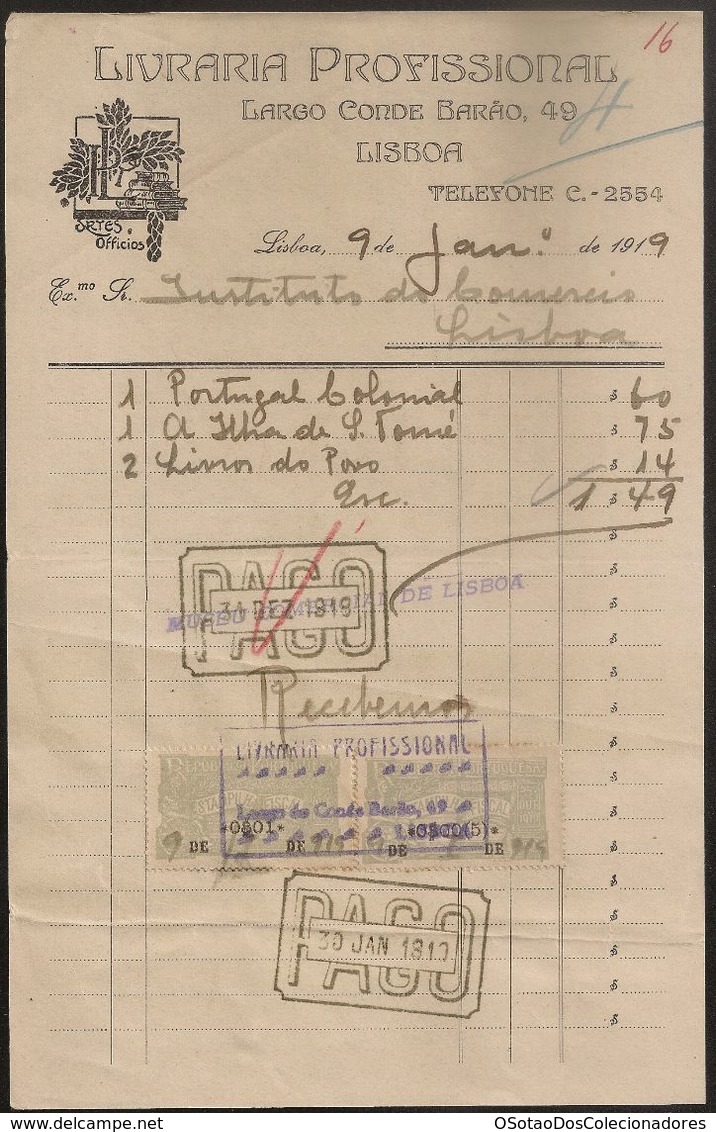 16
LIVRARIA PROFISSIONAL
LARGO CONDE BARÃO, 49
LISBOA
TELEFONE C.-2554
ARTES e
Officios
Lisboa, 9 de Jan.º de 1919
Ex.mo Sr. Instituto do Comercio
Lisboa
1 Portugal Colonial $ 60
1 A Ilha de S. Tomé $ 75
2 Livros do Povo $ 14
Esc. 1 $ 49
PAGO
31 DEZ 1919
MUSEU COMERCIAL DE LISBOA
Recebemos
LIVRARIA PROFISSIONAL
Largo do Conde Barão, 49
*0$01* *0$00(5)*
9 DE DE 919 DE DE 919
PAGO
30 JAN 1919
www.delcampe.net OSotaoDosColecionadores